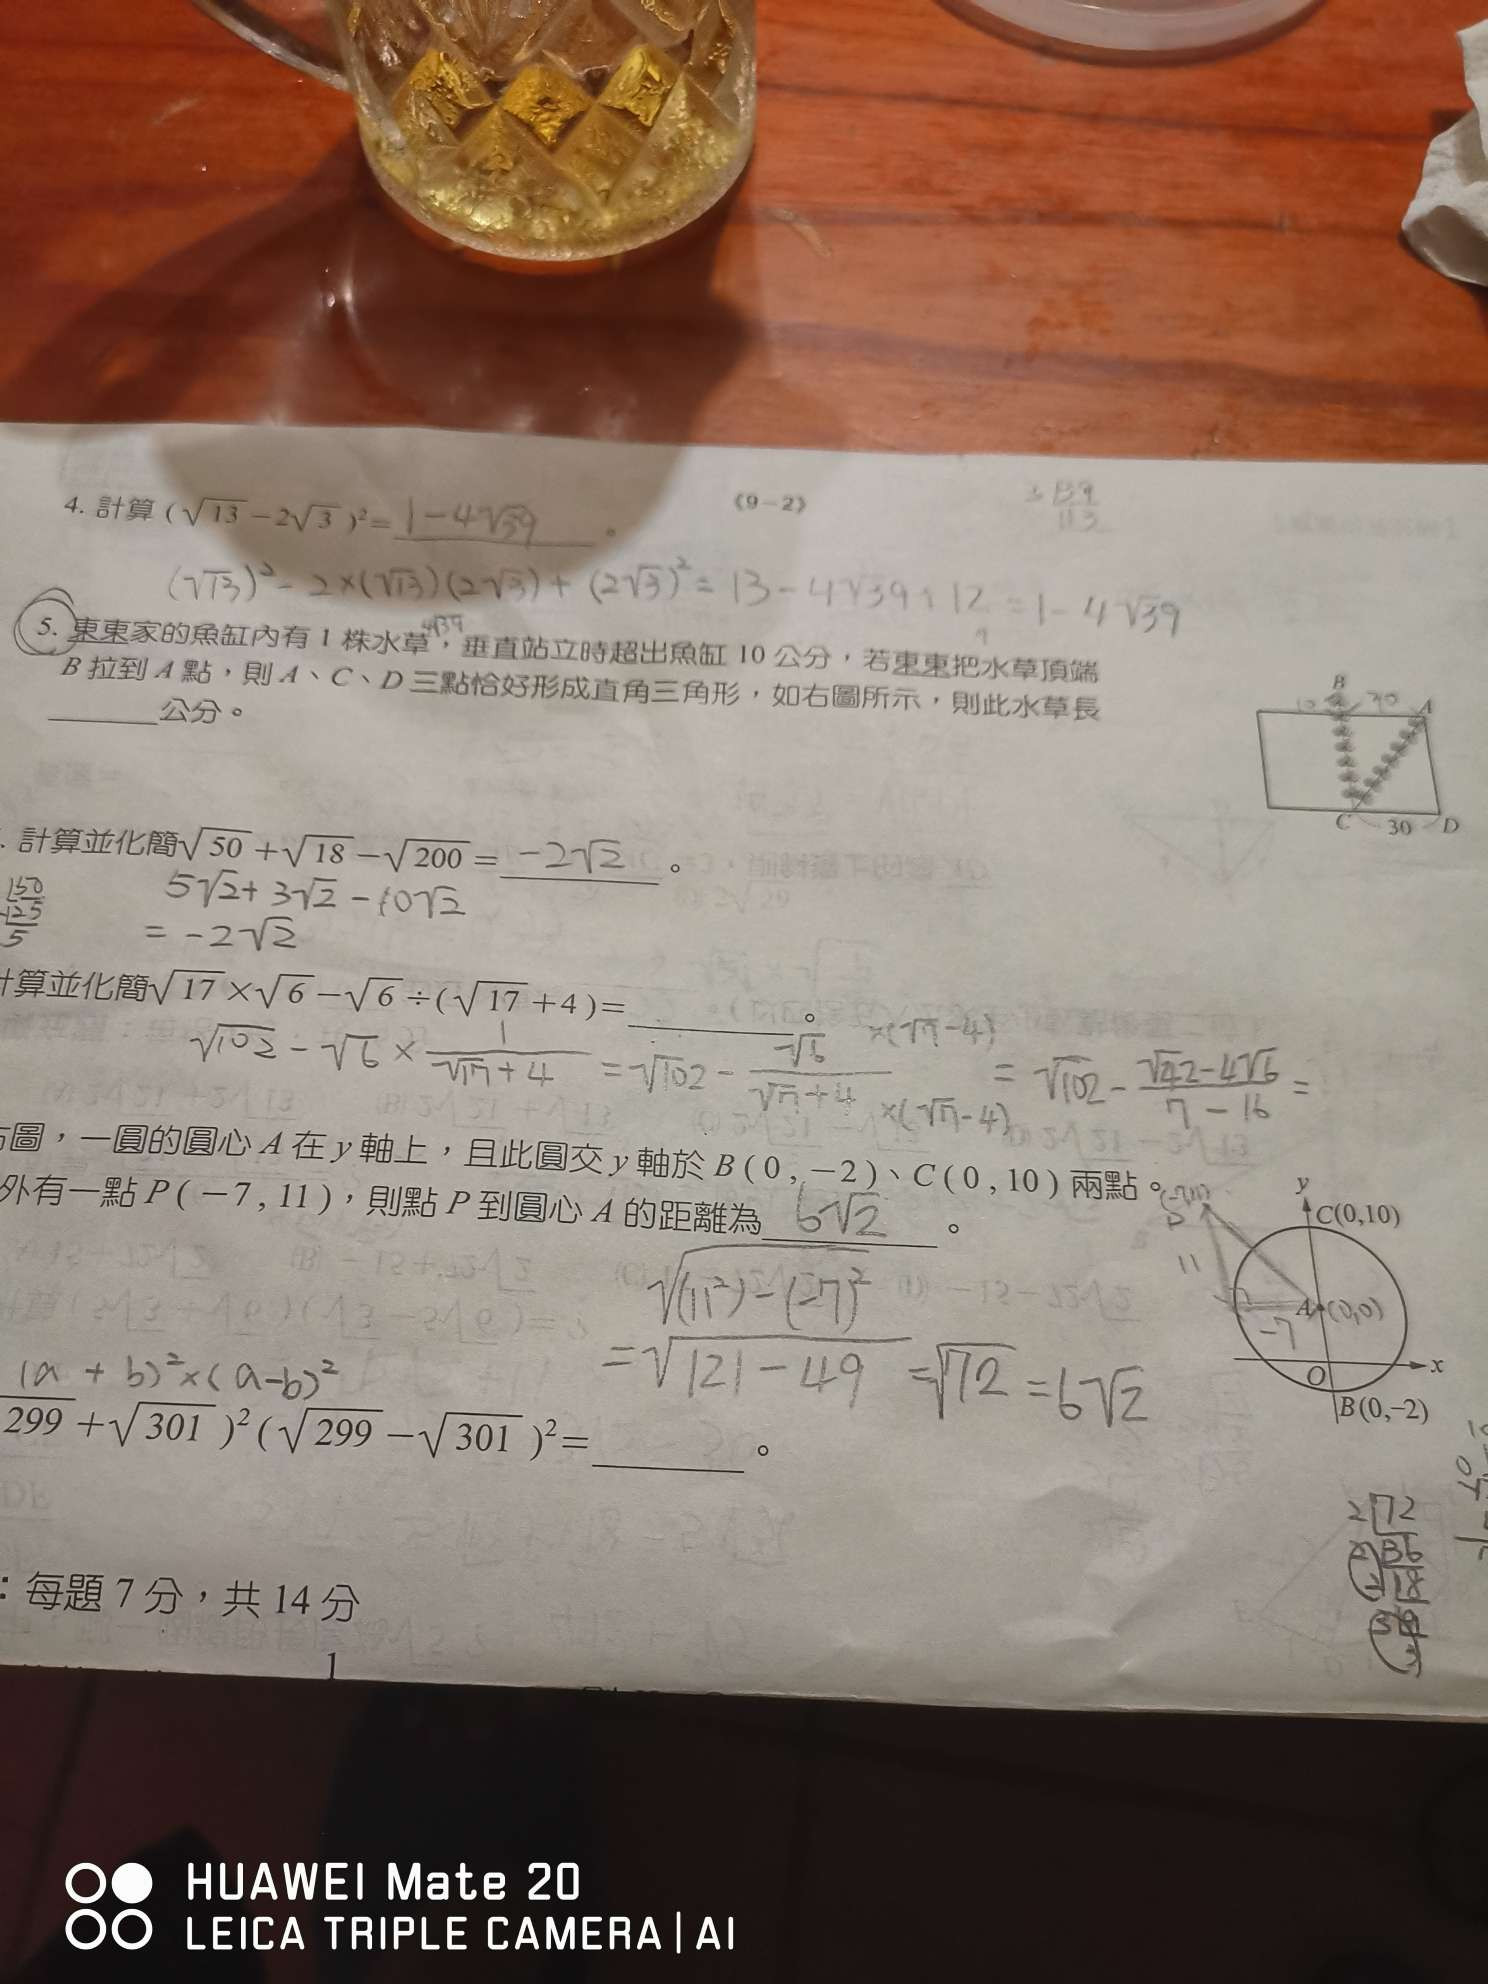 《9－2》
4. 計算 (√13－2√3)²＝ 1－4√39 。
(√13)²－2×(√13)(2√3)＋(2√3)²＝13－4√39＋12＝1－4√39
5. 東東家的魚缸內有 1 株水草，垂直站立時超出魚缸 10 公分，若東東把水草頂端
B 拉到 A 點，則 A、C、D 三點恰好形成直角三角形，如右圖所示，則此水草長
______公分。
B
10
A
C 30 D
. 計算並化簡√50＋√18－√200＝ －2√2 。
5√2＋3√2－10√2
＝－2√2
計算並化簡√17×√6－√6÷(√17＋4)＝______。
√102－√6×1/(√17＋4)
圖，一圓的圓心 A 在 y 軸上，且此圓交 y 軸於 B(0,－2)、C(0,10) 兩點。
外有一點 P(－7,11)，則點 P 到圓心 A 的距離為 6√2 。
y
C(0,10)
11
A (0,0)
-7
O
x
B(0,–2)
＝√121－49＝√72＝6√2
(a＋b)²×(a－b)²
299＋√301)²(√299－√301)²＝______。
2 72
：每題 7 分，共 14 分
1
HUAWEI Mate 20
LEICA TRIPLE CAMERA | AI